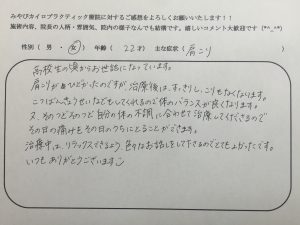 みやびカイロプラクティック療院に対するご感想をよろしくお願いいたします！！
施術内容、院長の人柄・雰囲気、院内の様子なんでも結構です。嬉しいコメント大歓迎です（*^_^*）
性別（ 男 ・ 女 ） 年齢（ 22才 ） 主な症状（ 肩こり ）
高校生の頃からお世話になっています。
肩こりがひどかったのですが、治療後は、すっきり、こりもなくなります。
こつばんきょうせいなどもしてくれるので体のバランスが良くなります。
又、そのつどそのつど自分の体の不調に合わせて治療してくださるので
その日の痛みをその日のうちにとることができます。
治療中は、リラックスできるよう、色々なお話しをして下さるのでとても上かったです。
いつもありがとうございます